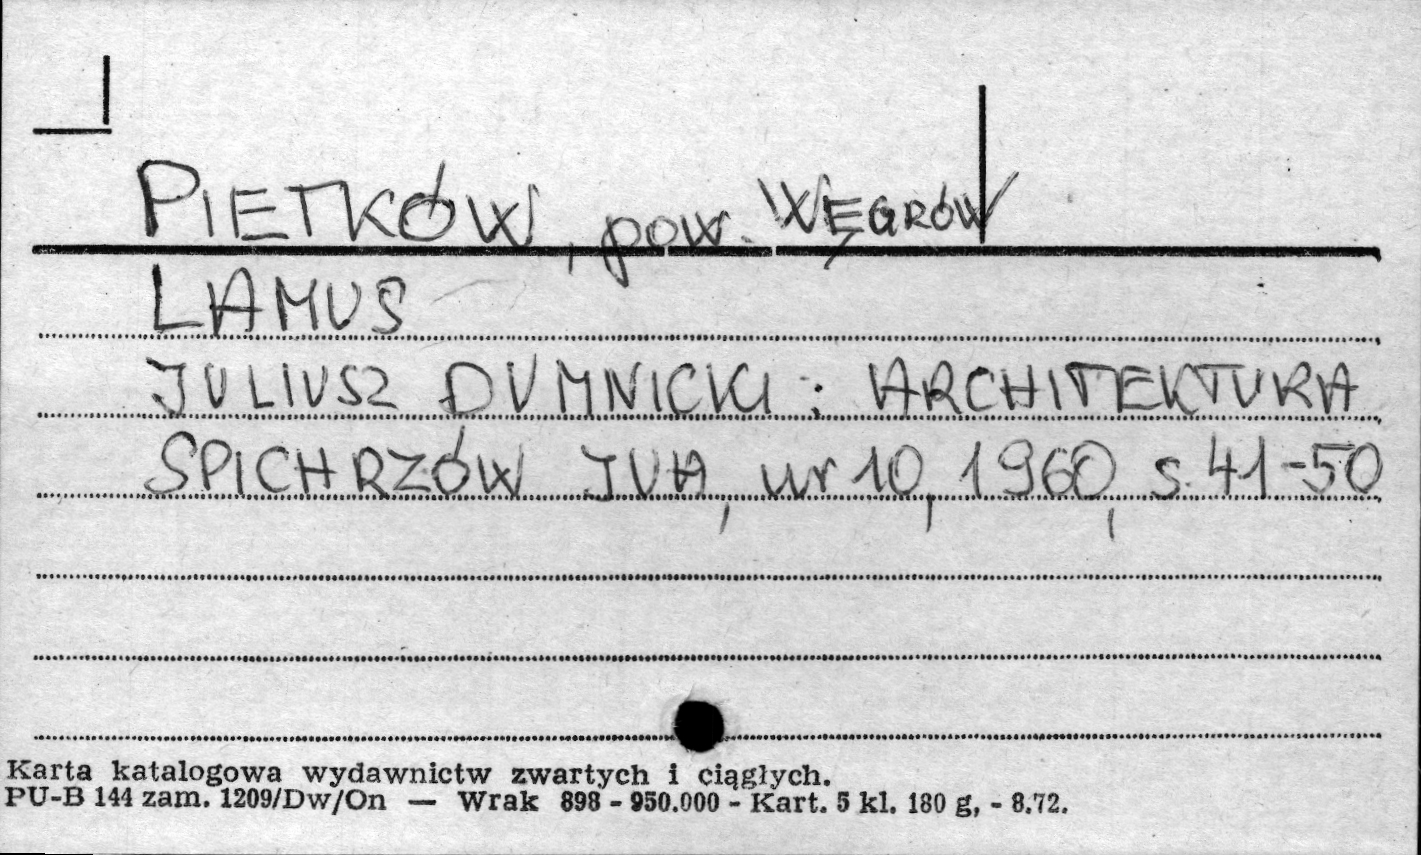 PIETKÓW, pow. WĘGRÓW
LAMUS
JULIUSZ DUMNICKI: ARCHITEKTURA
SPICHRZÓW JUA, nr 10, 1960, s. 41-50
Karta katalogowa wydawnictw zwartych i ciągłych.
PU-B 144 zam. 1209/Dw/On — Wrak 898 - 950.000 - Kart. 5 kl. 180 g, - 8.72.